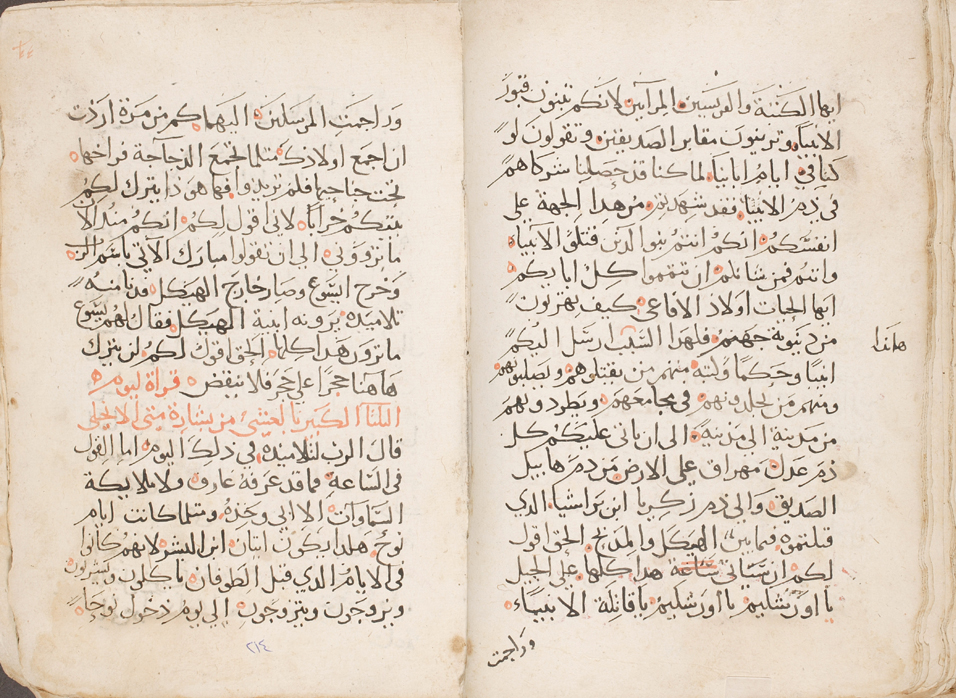 ايها الكتبة والفريسيين المرايين لانكم تبنون قبور
الانبيا وتزينون مقابر الصديقين وتقولون لو
كنا في ايام اباينا لما كنا قد حصلنا شركاهم
في دم الانبيا فقد شهدتم من هدا الجهة على
انفسكم انكم انتم بنوا الدين قتلوا الانبياء
وانتم فمن شانكم ان تتمموا كل ابايكم
ايها الحيات اولاد الافاعي كيف تهربون
من دينونة جهنم فلهدا السبب ارسل اليكم
هاندا
انبيا وحكما وكتبه منهم من يقتلوهم ويصلبوهم
ومنهم من تجلدونهم في مجامعهم وتطردونهم
من مدينة الى مدينة الى ان ياتى عليكم كل
دم عدل مهراق على الارض من دم هابيل
الصديق والى دم زكريا ابن براشيا الدي
قتلتموه فيما بين الهيكل والمدبح الحق اقول
لكم ان ستاتى ساعة هدا كلها على الجيل
يا اورشليم يا اورشليم يا قاتلة الانبياء
وراجمت
وراجمت المرسلين اليها كم من مرة اردت
ان اجمع اولادك مثلما تجمع الدجاجة فراخها
تحت جناحيها فلم تريدوا فها هو دا يترك لكم
بيتكم خرابا لاني اقول لكم انكم مند الان
ما تروني الى ان تقولوا مبارك الاتي باسم الرب
وخرج اليسوع وصار خارج الهيكل فدنا منه
تلاميده يرونه ابنية الهيكل فقال لهم يسوع
ما ترون هدا كلها الحق اقول لكم لن يترك
هاهنا حجرا على حجر فلا ينقض قراة ليوم
التلتا الكبير بالعشي من بشارة متى الانجيلي
قال الرب لتلاميده في دلك اليوم اما القول
فى الساعة فما قد عرفه عارف ولا ملايكة
السماوات الا ابي وحده ومثلما كانت ايام
نوح هكدا يكون اتيان ابن البشر لانهم كانوا
فى الايام الدي قبل الطوفان ياكلون ويشربون
ويزوجون ويتزوجون الى يوم دخول نوحا
٢١٤